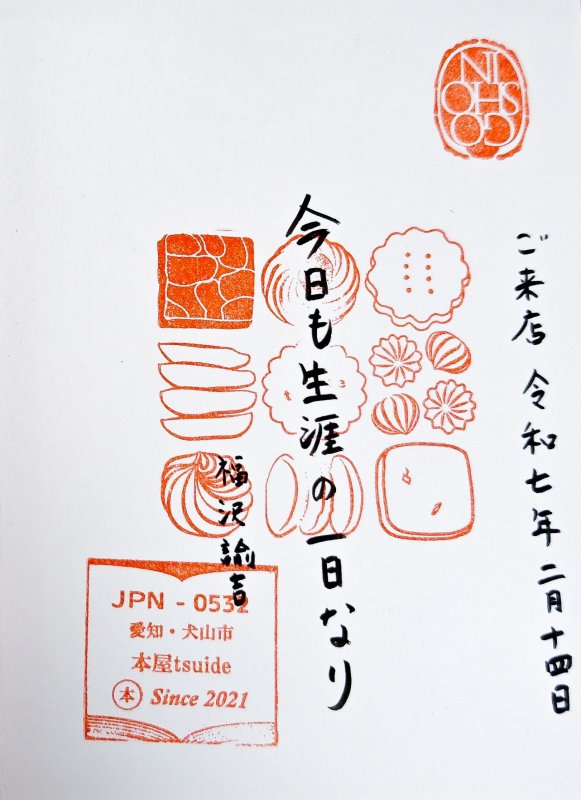 NI
OHS
GO
ご来店 令和七年 二月十四日
今日も生涯の一日なり
福沢諭吉
JPN - 0532
愛知・犬山市
本屋tsuide
本 Since 2021